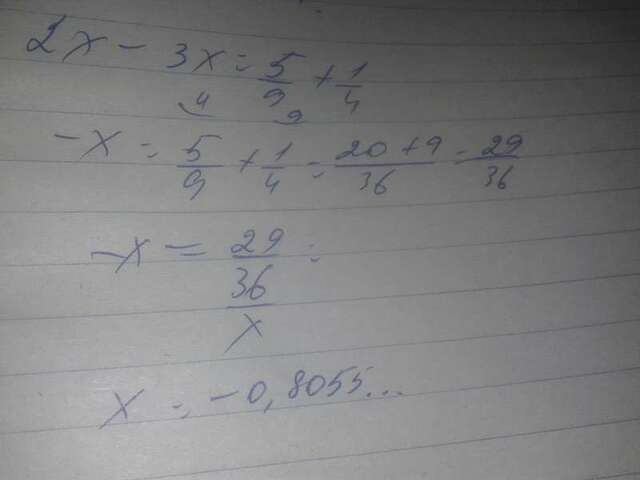 2x - 3x = 5/9 + 1/4
4 9
-x = 5/9 + 1/4 = 20+9/36 = 29/36
-x = 29/36/x =
x = -0,8055...